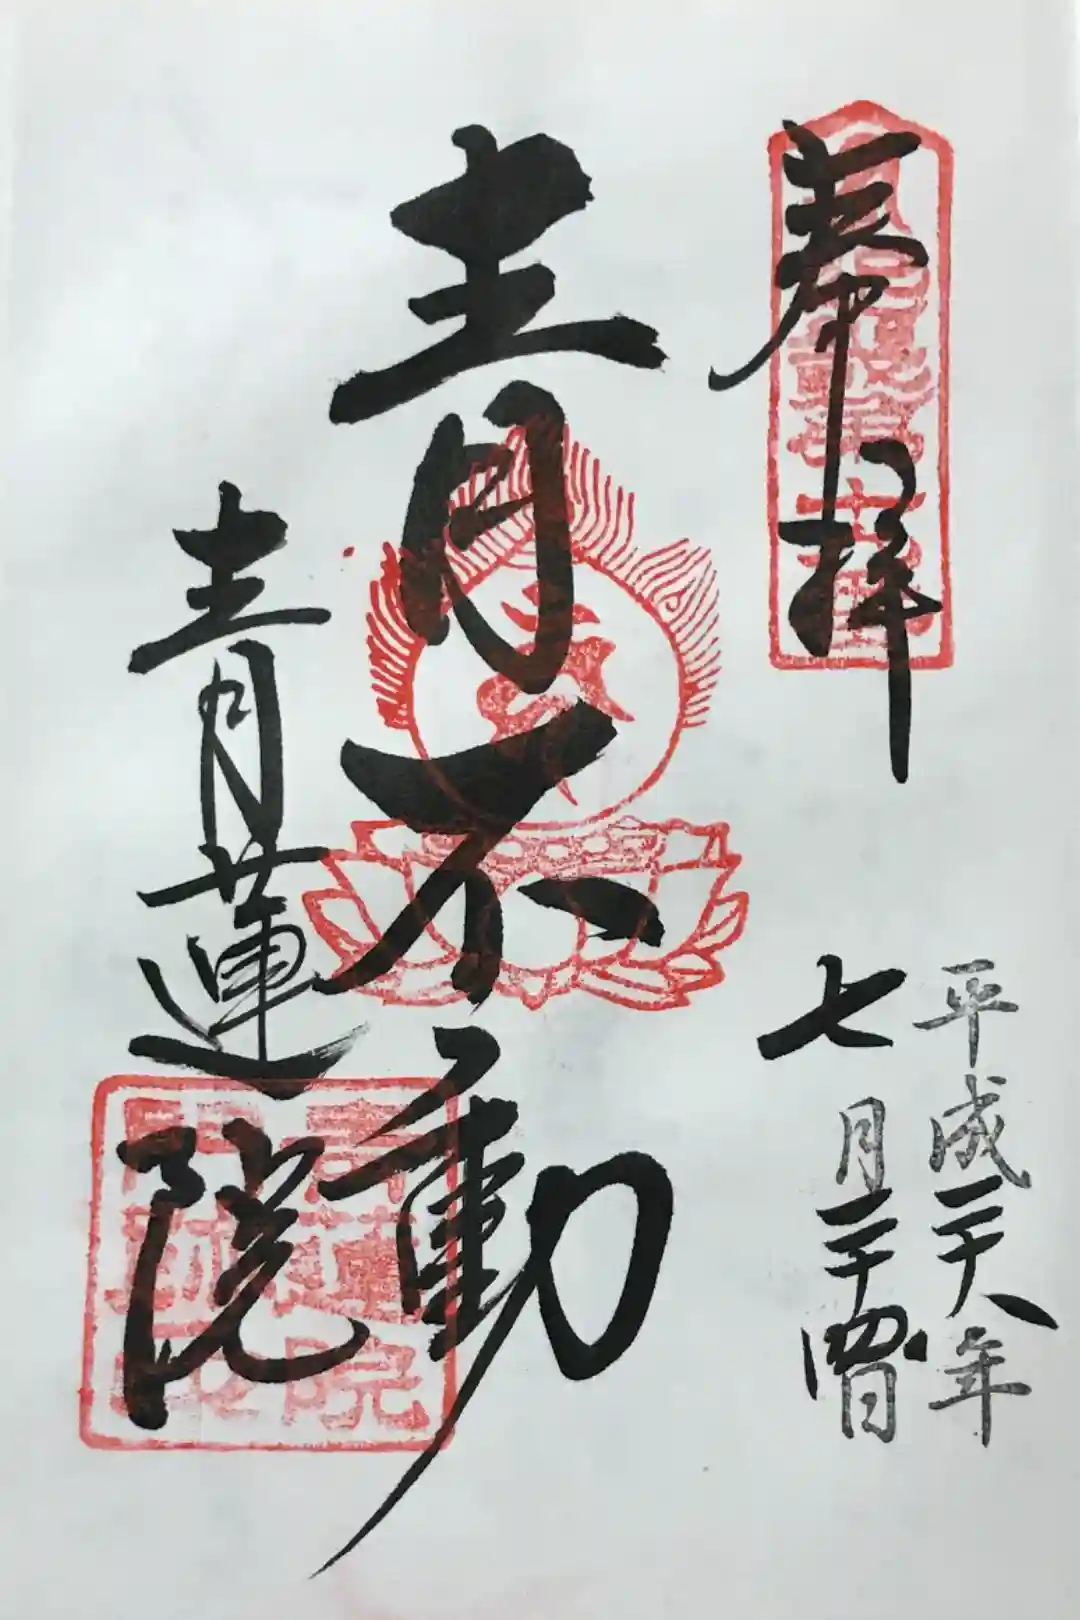 奉拝
平成二十八年
七月二十四日
青不動
青蓮院